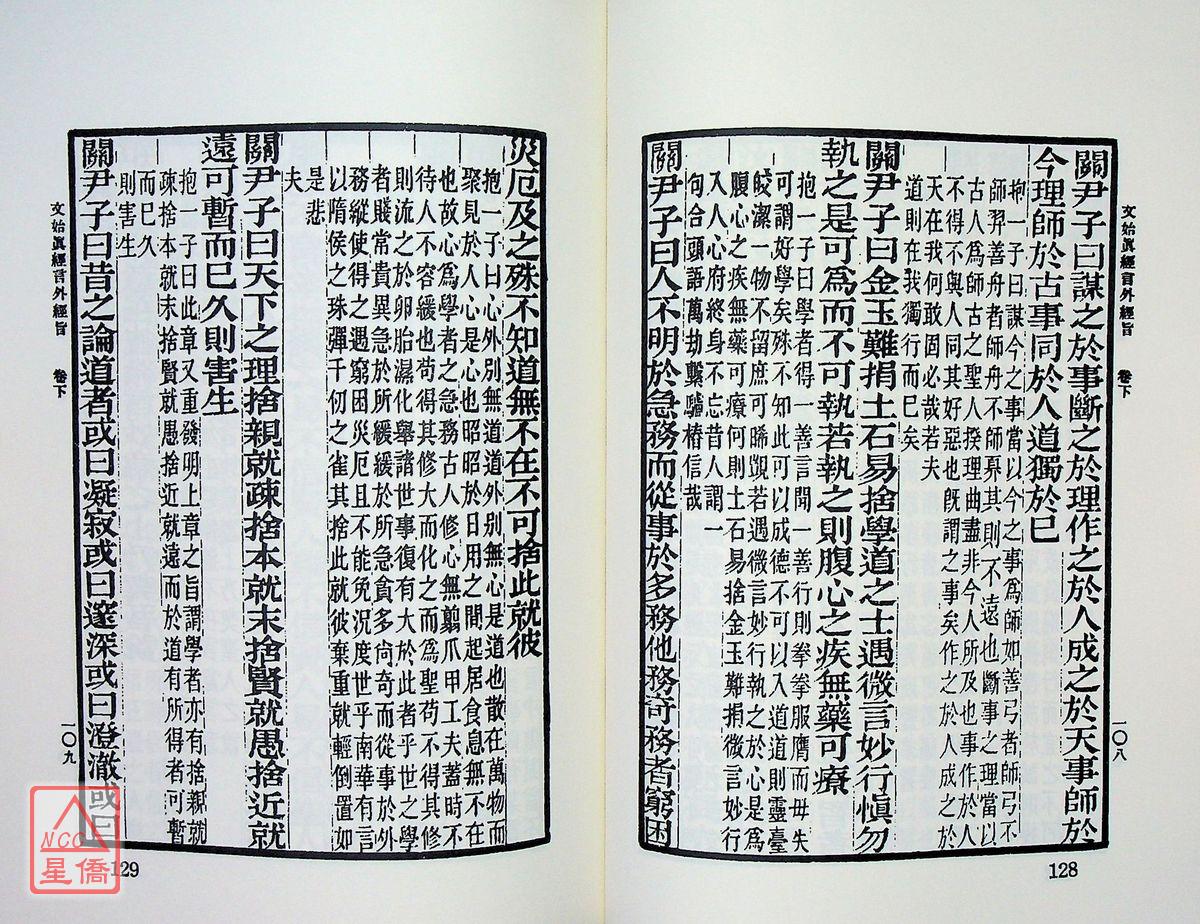 文始眞經言外經旨　卷下
一〇八
關尹子曰謀之於事斷之於理作之於人成之於天事師於
今理師於古事同於人道獨於已
抱一子曰謀今之事當以今之事爲師如善弓者師弓不
師羿善舟者師舟不師奡其則不遠也斷事之理當以
古人爲師古之聖人揆理曲盡非今人所及也事作於人
不得不與人同其好惡也旣謂之事矣作之於人成之於
天在我何敢固必哉若夫
道則在我獨行而已矣
關尹子曰金玉難捐土石易捨學道之士遇微言妙行愼勿
執之是可爲而不可執若執之則腹心之疾無藥可療
抱一子曰學者得一善言聞一善行則拳拳服膺而毋失
可謂好學矣殊不知此可以成德不可以入道道則靈臺
皎潔一物不留庶可睎覬若遇微言妙行執之於心是爲
腹心之疾無藥可療何則土石易捨金玉難捐微言妙行
入人心府終身不忘昔人謂一
句合頭語萬劫繫驢樁信哉
關尹子曰人不明於急務而從事於多務他務奇務者窮困
128
災厄及之殊不知道無不在不可捨此就彼
抱一子曰心外別無道道外別無心是道也散在萬物而
聚見於人人心是心也昭昭於日用之間起居食息無不在
也故心爲學者之急務古人修心無翦爪甲工夫蓋時不
待人不容緩也苟得其修大而化之而爲聖苟不得其修
則流之於卵胎濕化舉諸世事復有大於此者乎世之學
者賤常貴異急於所緩緩於所急貪多尙奇而從事於外
務縱使得之遇窮困災厄且不能免況度世乎南華有言
以隋侯之珠彈千仞之雀其捨此就彼棄重就輕倒置如
是悲
夫
關尹子曰天下之理捨親就疎捨本就末捨賢就愚捨近就
遠可暫而已久則害生
抱一子曰此章又重發明上章之旨謂學者亦有捨親就
疎捨本就末捨賢就愚捨近就遠而於道有所得者可暫
而已久
則害生
關尹子曰昔之論道者或曰凝寂或曰邃深或曰澄澈或曰
文始眞經言外經旨　卷下
一〇九
129
NCC
星僑